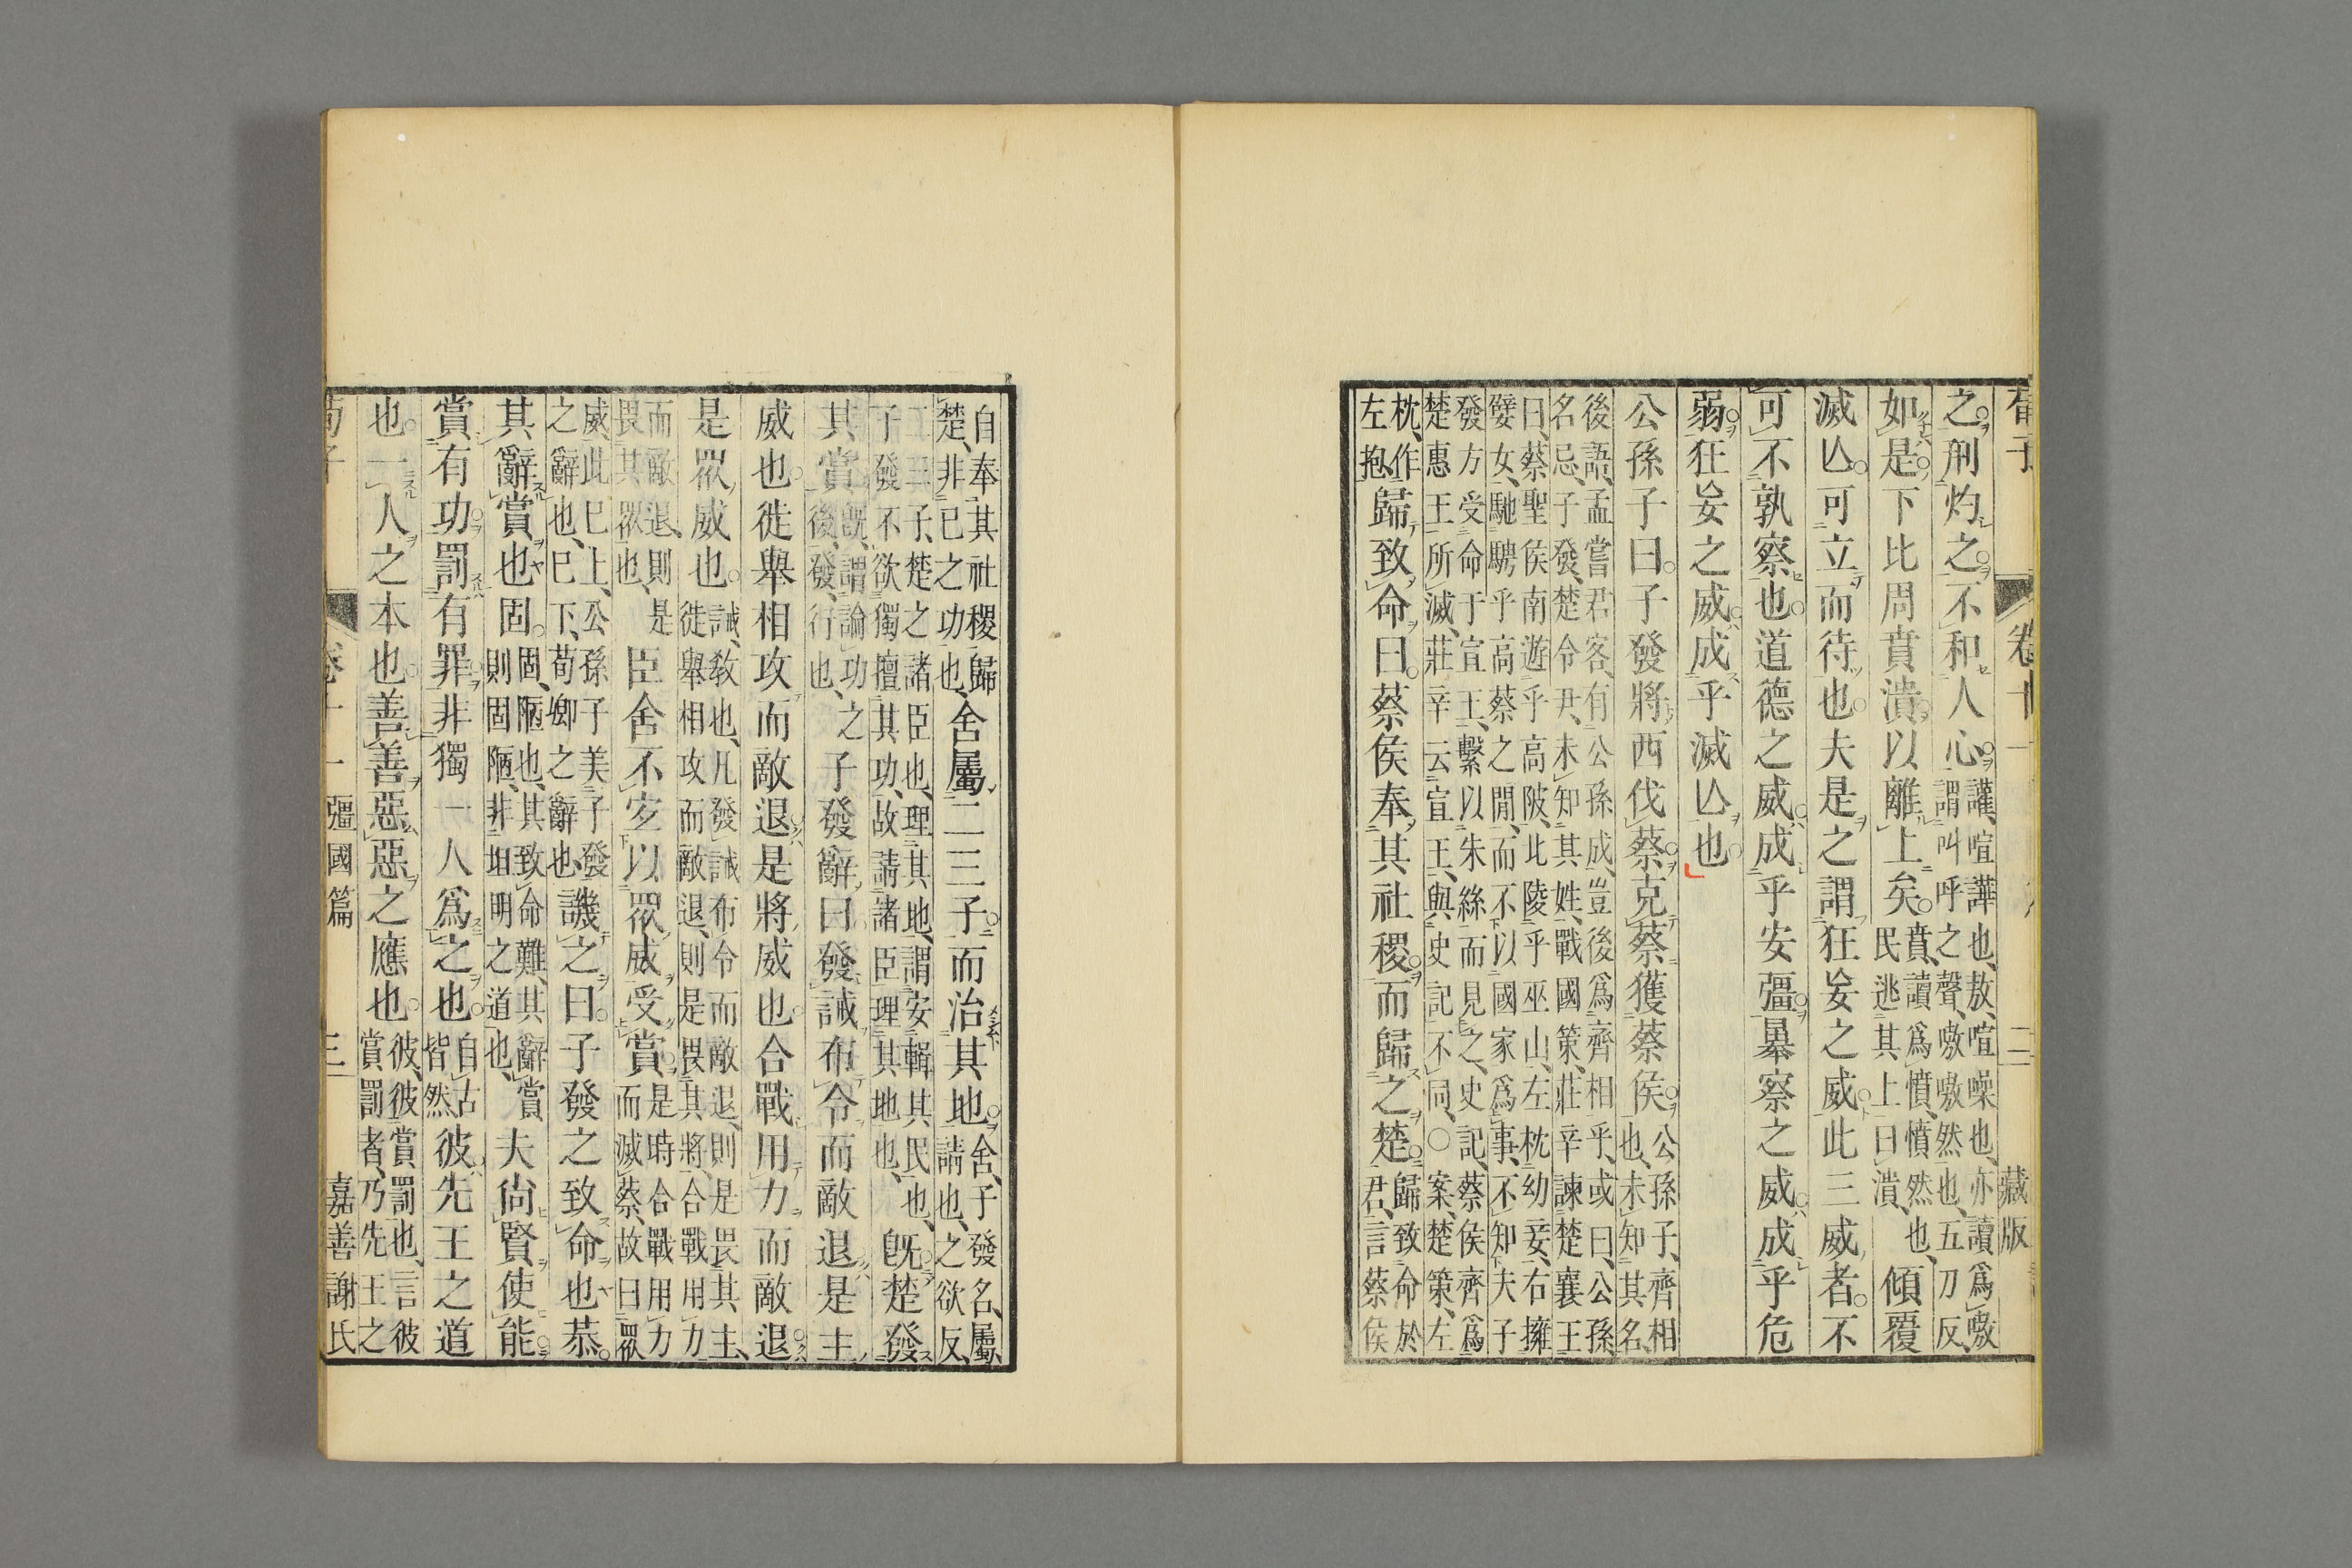 荀子 卷十一 二 藏版
之刑灼之不和人心讙、喧譁也、敖、喧噪也、亦讀爲嗷
謂叫呼之聲、嗷嗷然也、五刀反、
如是下比周賁潰以離上矣賁、讀爲憤、憤然也、
民逃其上曰潰、
傾覆
滅亾可立而待也夫是之謂狂妄之威此三威者不
可不孰察也道德之威成乎安彊暴察之威成乎危
弱狂妄之威成乎滅亾也
公孫子曰子發將西伐蔡克蔡獲蔡侯公孫子、齊相
也、未知其名、
後語、孟嘗君客、有公孫成、豈後爲齊相乎、或曰、公孫
名忌、子發、楚令尹、未知其姓、戰國策、莊辛諫楚襄王
曰、蔡聖侯南遊乎高陂、北陵乎巫山、左枕幼妾、右擁
嬖女、馳騁乎高蔡之閒、而不以國家爲事、不知夫子
發方受命于宣王、繫以朱絲而見之、史記、蔡侯齊爲
楚惠王所滅、莊辛云宣王、與史記不同、○案、楚策、左
枕、作
左抱、
歸致命曰蔡侯奉其社稷而歸之楚歸致命於
君、言蔡侯
自奉其社稷歸
楚、非己之功也、
舍屬二三子而治其地舍、子發名、屬、
請也、之欲反、
二三子、楚之諸臣也、理其地、謂安輯其民也、
子發不欲獨擅其功、故請諸臣理其地也、
既楚發
其賞既、謂論功之
後、發、行也、
子發辭曰發誡布令而敵退是主
威也徙舉相攻而敵退是將威也合戰用力而敵退
是眾威也誡、敎也、凡發誡布令而敵退、則是畏其主、
徙舉相攻而敵退、則是畏其將、合戰用力
而敵退、則是
畏其眾也、
臣舍不宜以眾威受賞是時合戰用力
而滅蔡、故曰眾
威、此已上、公孫子美子發
之辭也、已下、荀卿之辭也、
譏之曰子發之致命也恭
其辭賞也固固、陋也、其致命難、其辭賞
則固陋、非坦明之道也、
夫尙賢使能
賞有功罰有罪非獨一人爲之也自古
皆然
彼先王之道
也一人之本也善善惡惡之應也彼、彼賞罰也、言彼
賞罰者、乃先王之
荀子 卷十一 彊國篇 三 嘉善謝氏